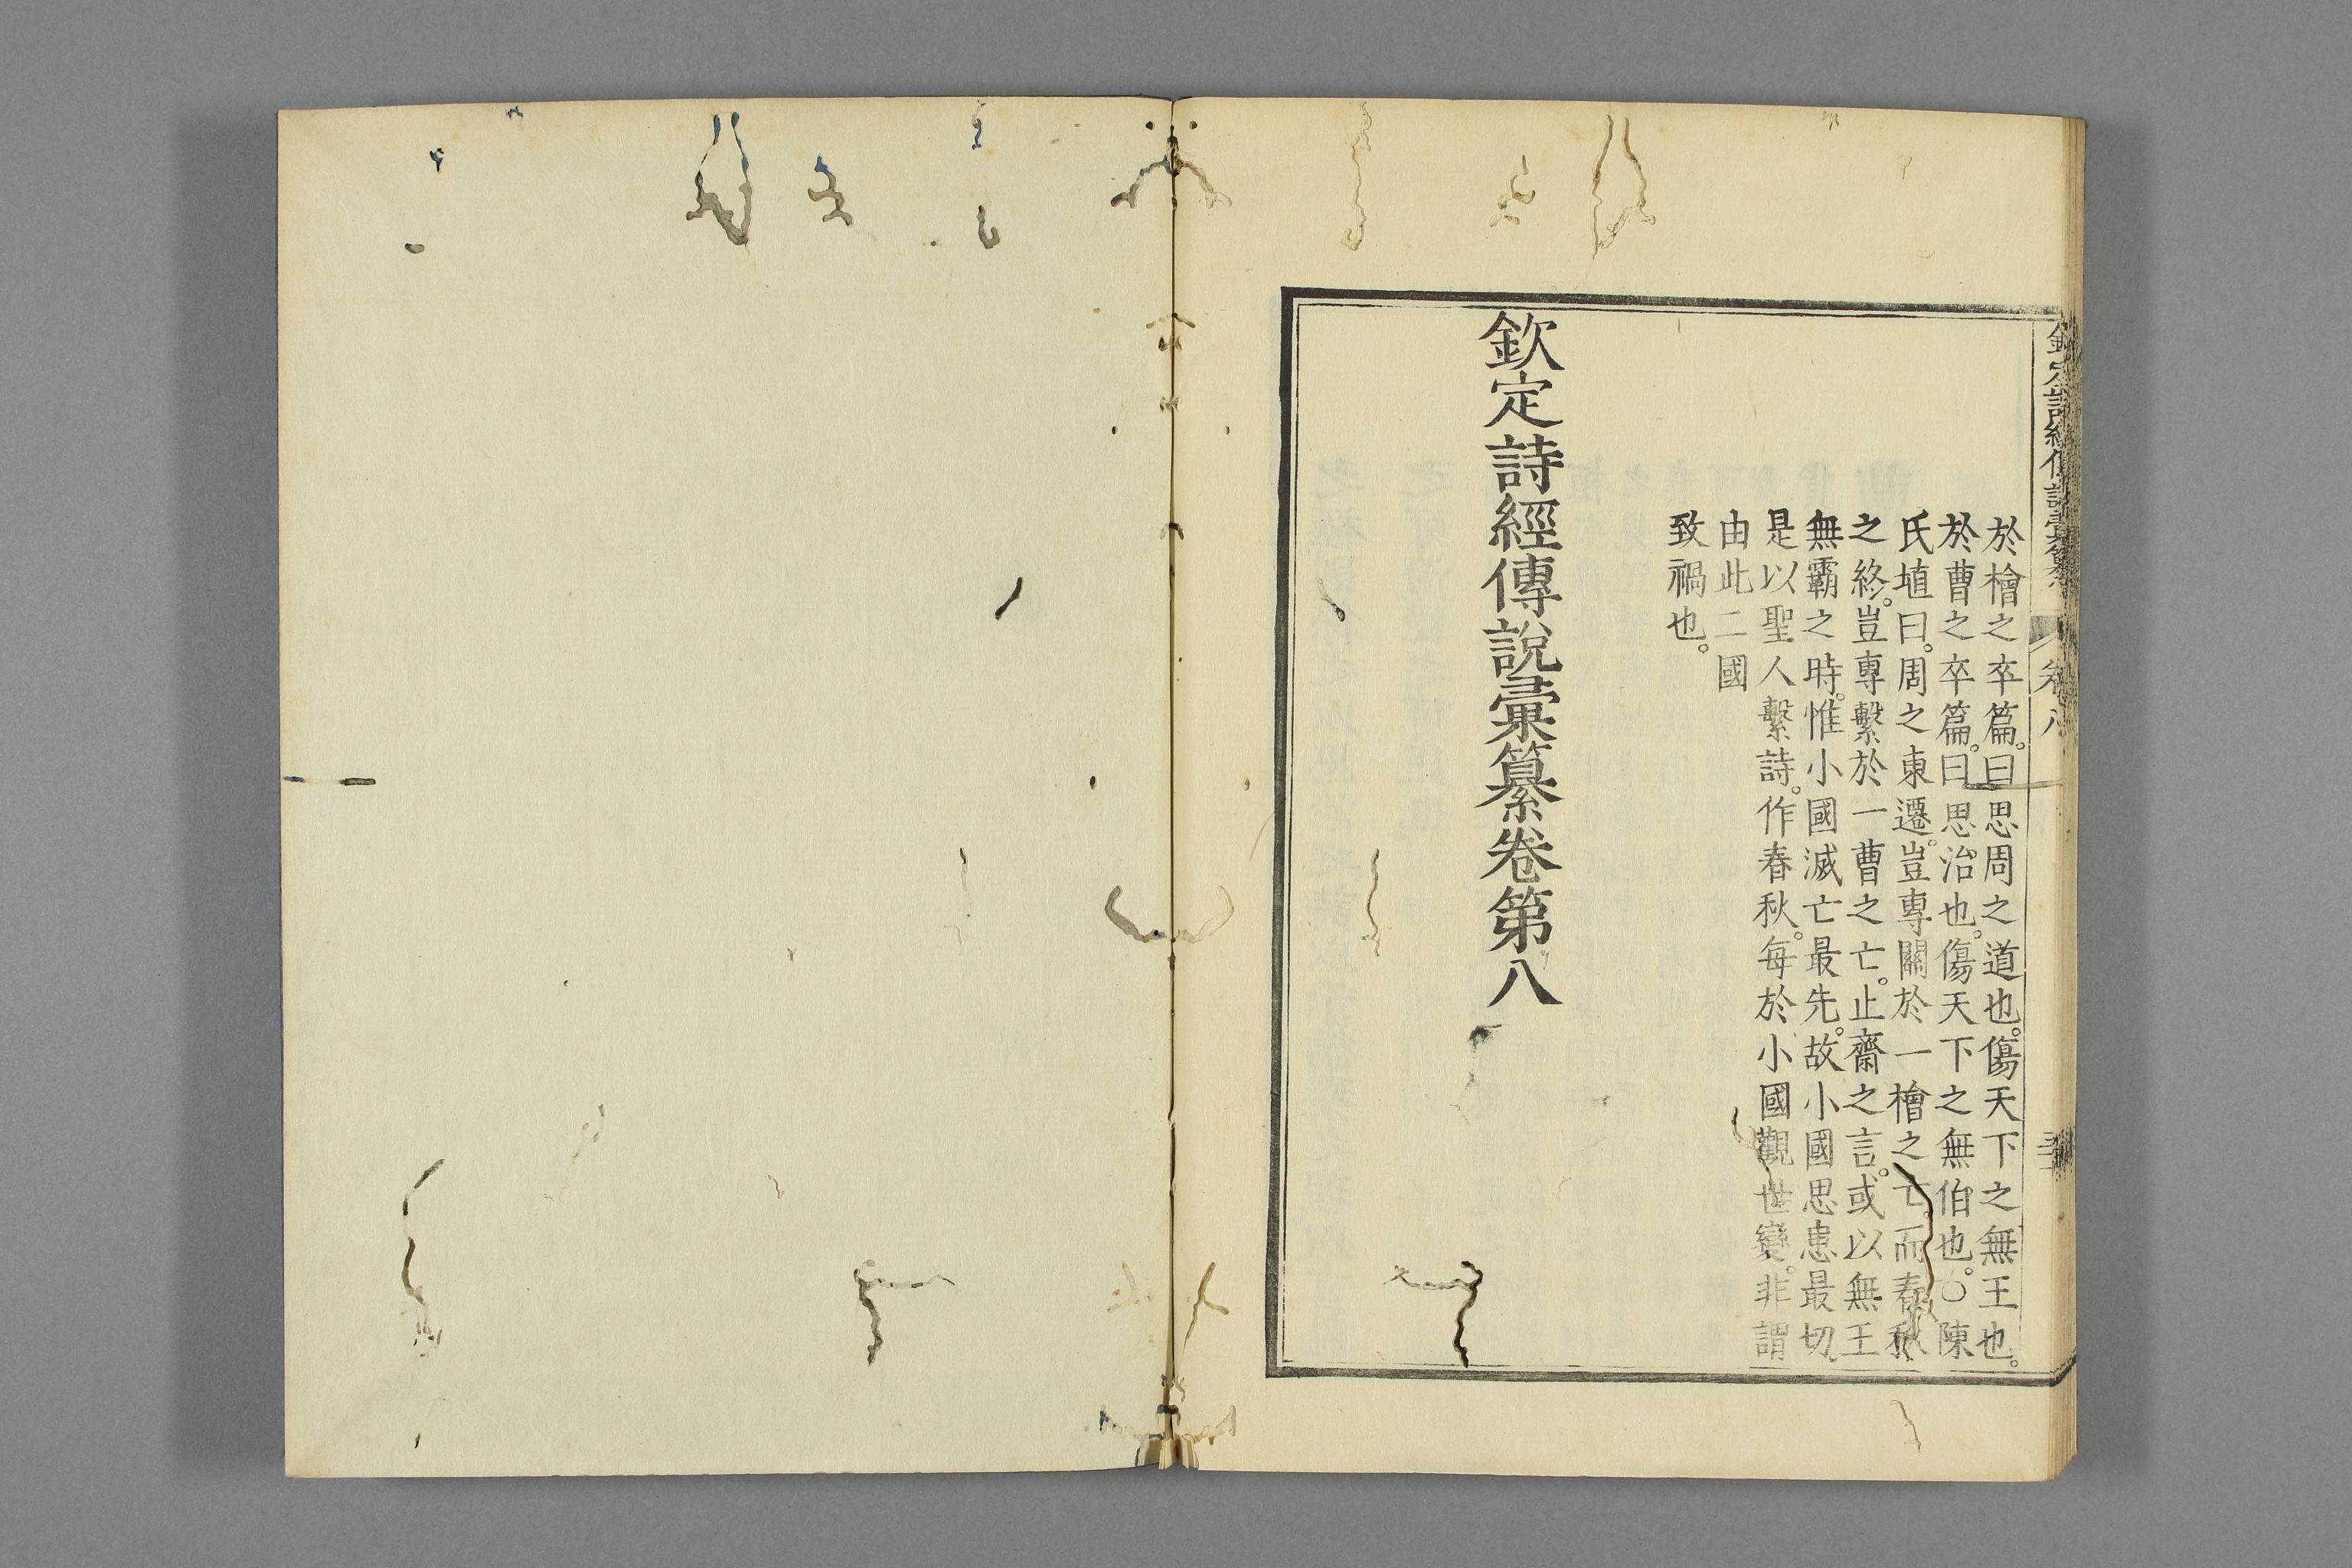 於檜之卒篇。曰思周之道也。傷天下之無王也。
於曹之卒篇。曰思治也。傷天下之無伯也。○陳
氏埴曰。周之東遷。豈專關於一檜之亡。而春秋
之終。豈專繫於一曹之亡。止齋之言。或以無王
無霸之時。惟小國滅亡最先。故小國思患最切。
是以聖人繫詩。作春秋。每於小國觀世變。非謂
由此二國
致禍也。
欽定詩經傳說彙纂卷第八
欽定詩經傳說彙纂 卷八